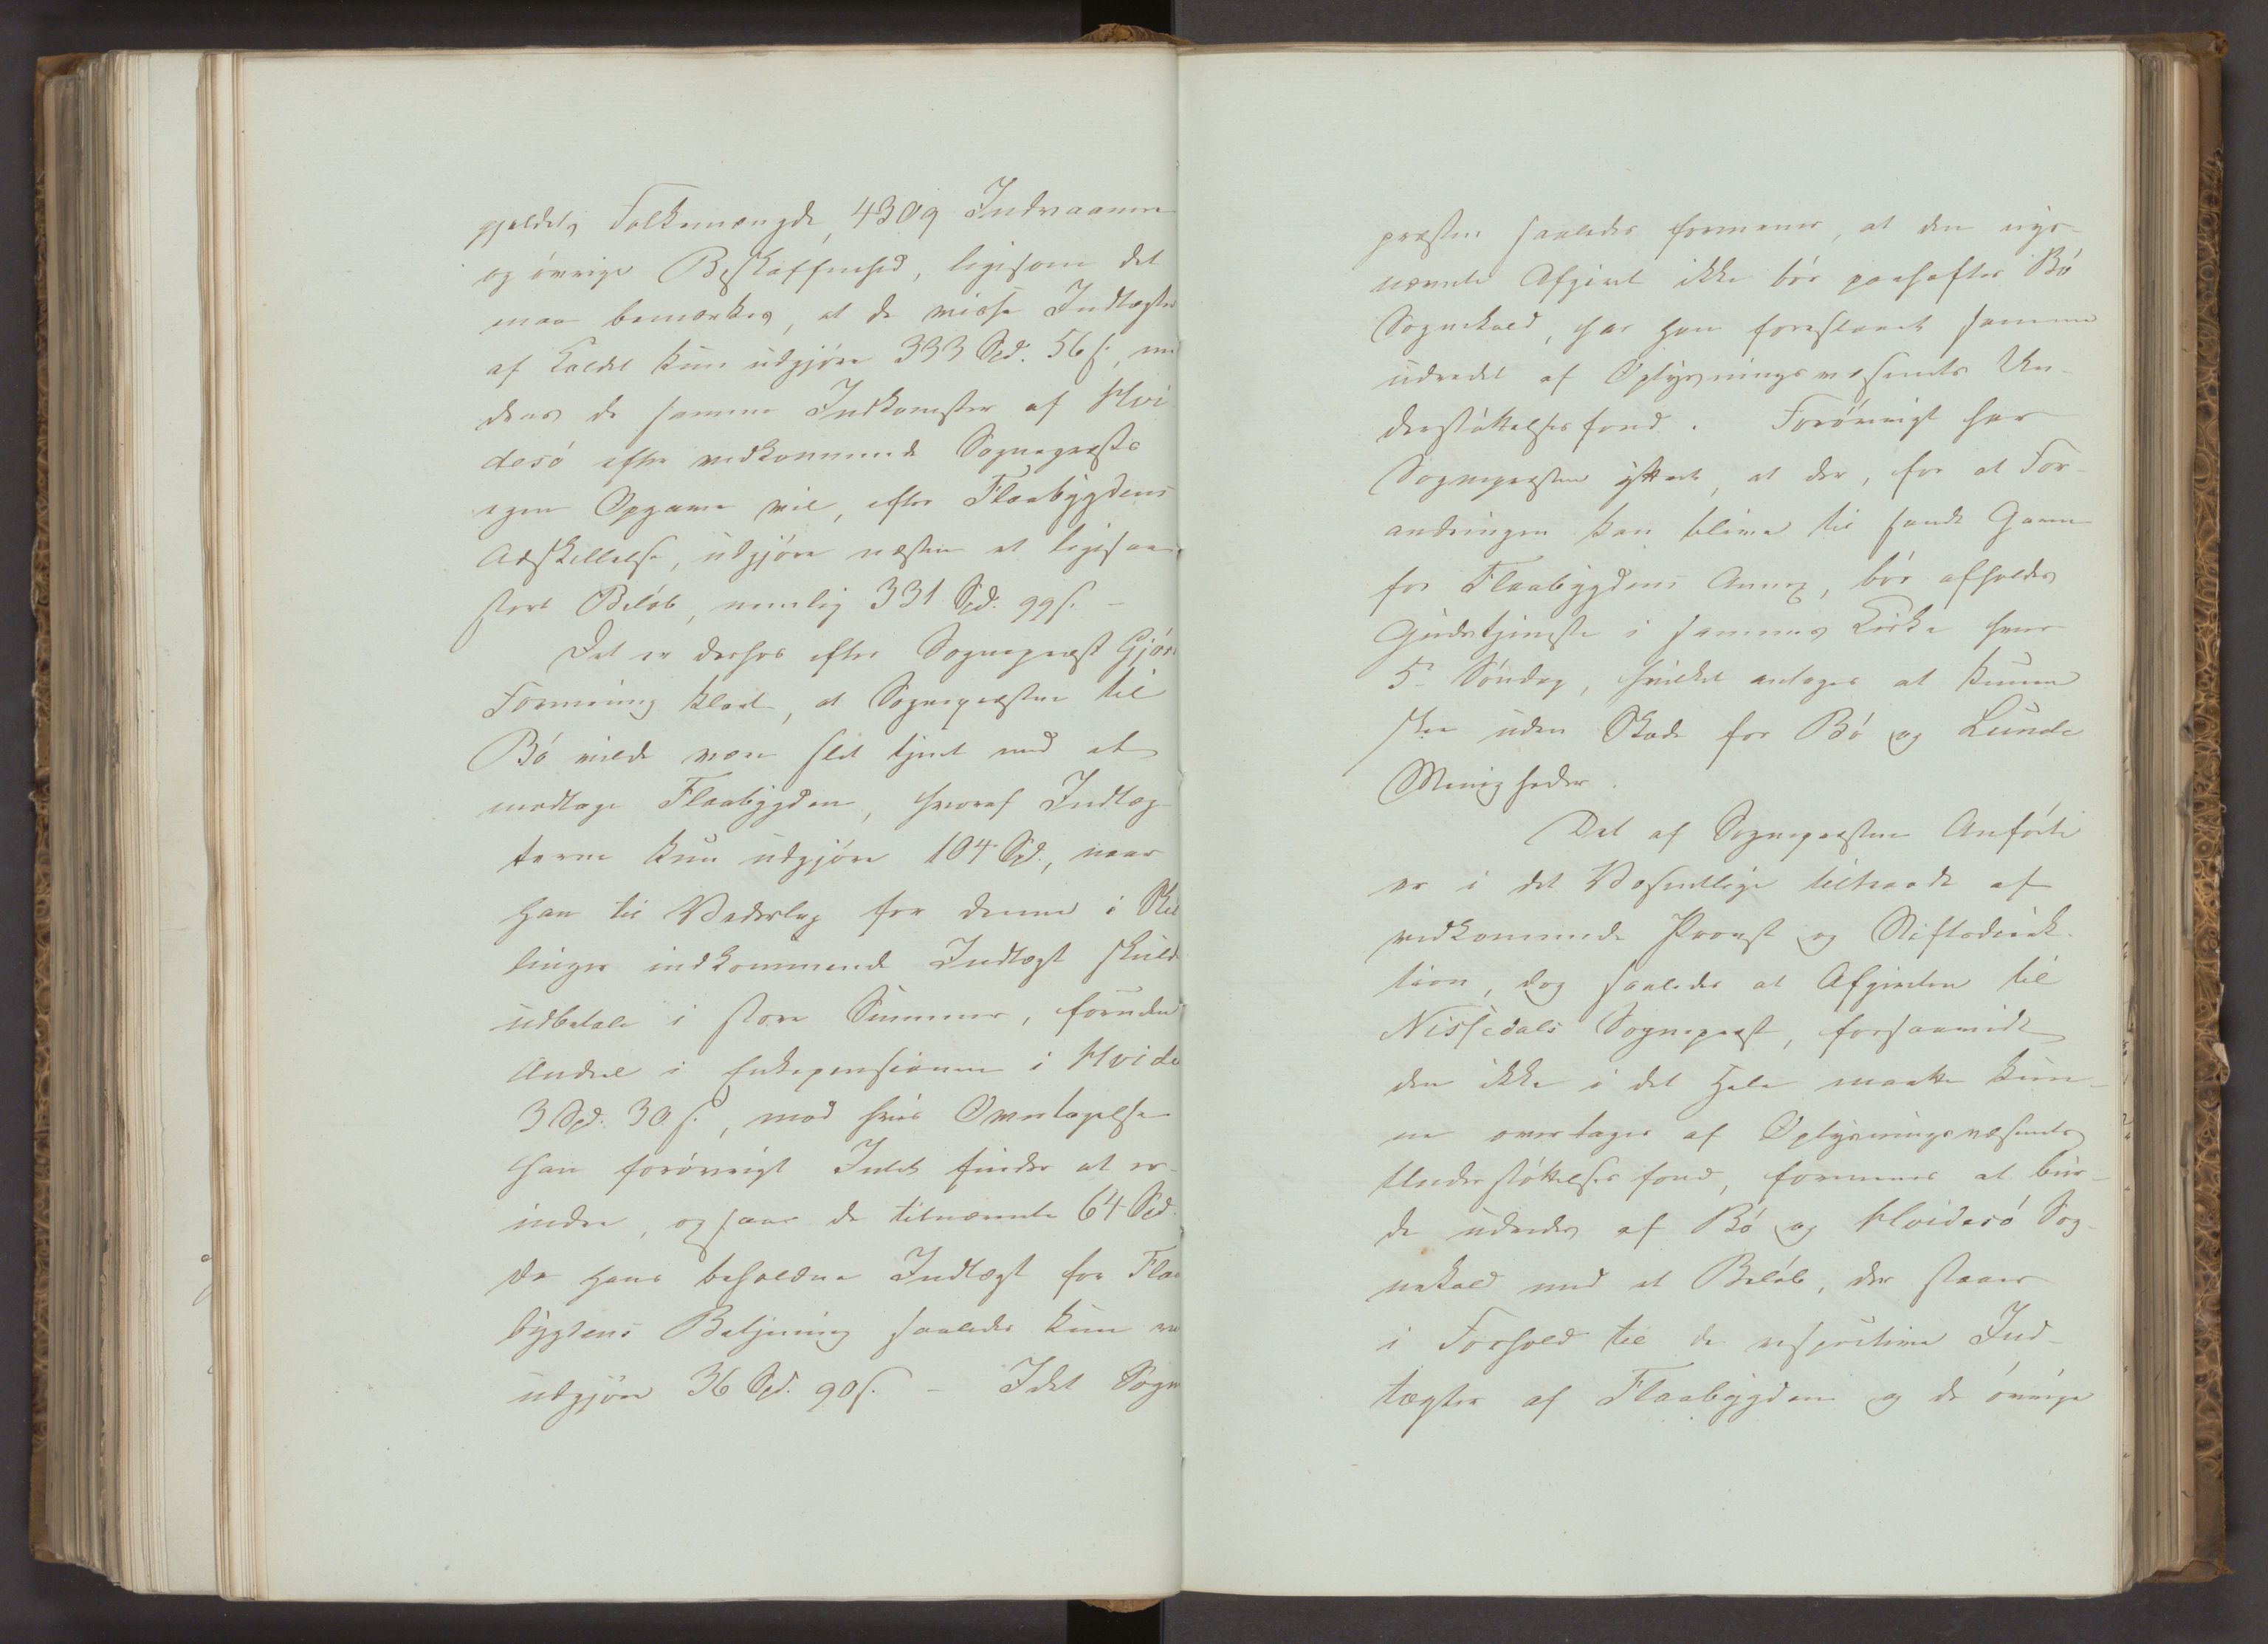 gjeldets Folkemængde, 4309 Indvaanere
og øvrige Beskaffenhed, ligesom det
maa bemærkes, at de visse Indtægter
af Kaldet kun udgjøre 333 Spd. 56 s., me
dens de samme Indkomster af Hvi
desø efter vedkommende Sognepræsts
egen Opgave vil, efter Flaabygdens
Adskillelse, udgjøre næsten et ligesaa
stort Beløb, nemlig 331 Spd. 99 s. –
Det er derhos efter Sognepræst Gjør
Formening klart, at Sognepræsten til
Bø vilde være slet tjent med at
modtage Flaabygden, hvoraf Indtæg
terne kun udgjøre 104 Spd., naar
han til Vederlag for denne i Skil
linger indkommende Indtægt skuld
udbetale i store Summer, foruden
Andeel i Enkepensionen i Hvide
3 Spd. 30 s., mod hvis Overtagelse
han forøvrigt Intet finder at er-
indre, ogsaa de tilnævnte 64 Spd.
da hans beholdne Indtægt for Flaa
bygdens Betjening saaledes kun vil
udgjøre 36 Spd. 90 s. – Idet Sogne
præsten saaledes formener, at den nys-
nævnte Afgivt ikke bør paahæftes Bø
Sognekald, har han foreslaaet samme
udredet af Oplysningsvæsenets Un-
derstøttelsesfond. Forøvrigt har
Sognepræsten yttret, at der, for at For-
andringen kan blive til sandt Gavn
for Flaabygdens Annex, bør afholdes
Gudstjeneste i sammes Kirke hver
5te Søndag, hvilket antages at kunne
skee uden Skade for Bø og Lunde
Menigheder.
Det af Sognepræsten Anførte
er i det Væsentlige tiltraadt af
vedkommende Provst og Stiftsdirek-
tion, dog saaledes at Afgivten til
Nissedals Sognepræst, forsaavidt
den ikke i det Hele maatte kun-
ne overtages af Oplysningsvæsenets
Understøttelsesfond, formenes at bur-
de udredes af Bø og Hvidesø Sog-
nekald med et Beløb, der staaer
i Forhold til de respective Ind-
tægter af Flaabygden og de øvrige